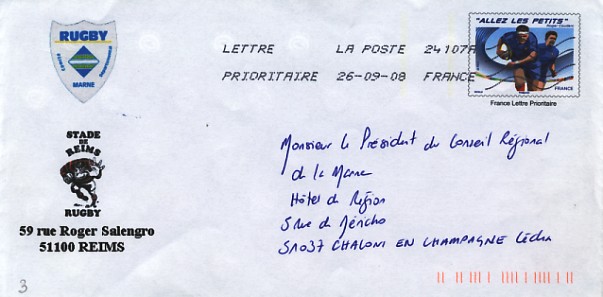 RUGBY
MARNE
LETTRE LA POSTE 24107A
PRIORITAIRE 26-09-08 FRANCE
"ALLEZ LES PETITS"
FRANCE
France Lettre Prioritaire
STADE
DE
REIMS
RUGBY
59 rue Roger Salengro
51100 REIMS
Monsieur le Président du Conseil Régional
de la Marne
Hôtel de Région
5 rue de Jéricho
51037 CHALONS EN CHAMPAGNE Cédex
3